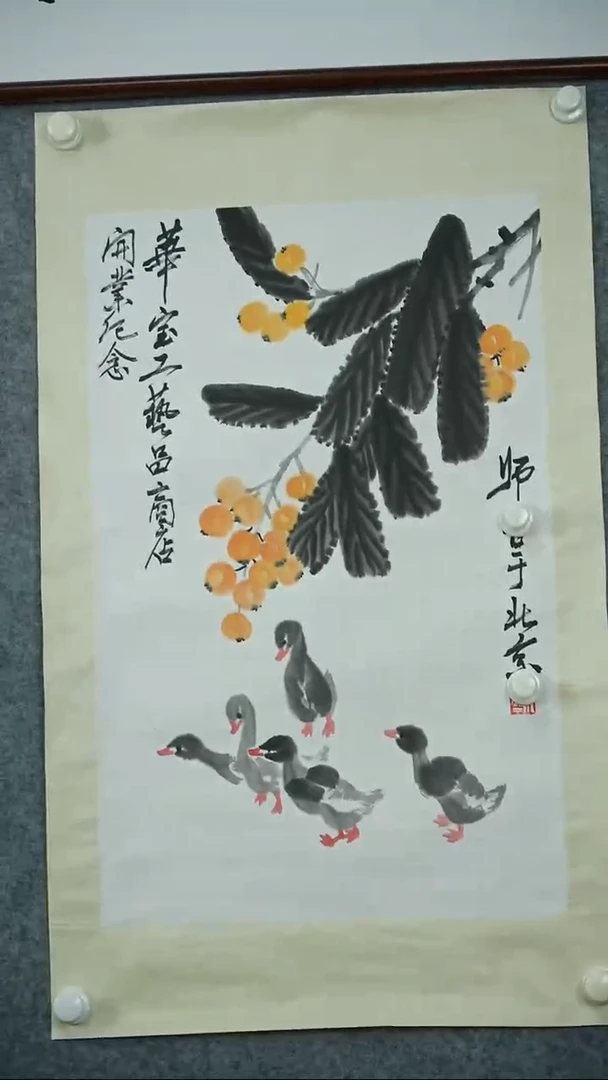 華宝工藝品商店
開業纪念
师
于北京